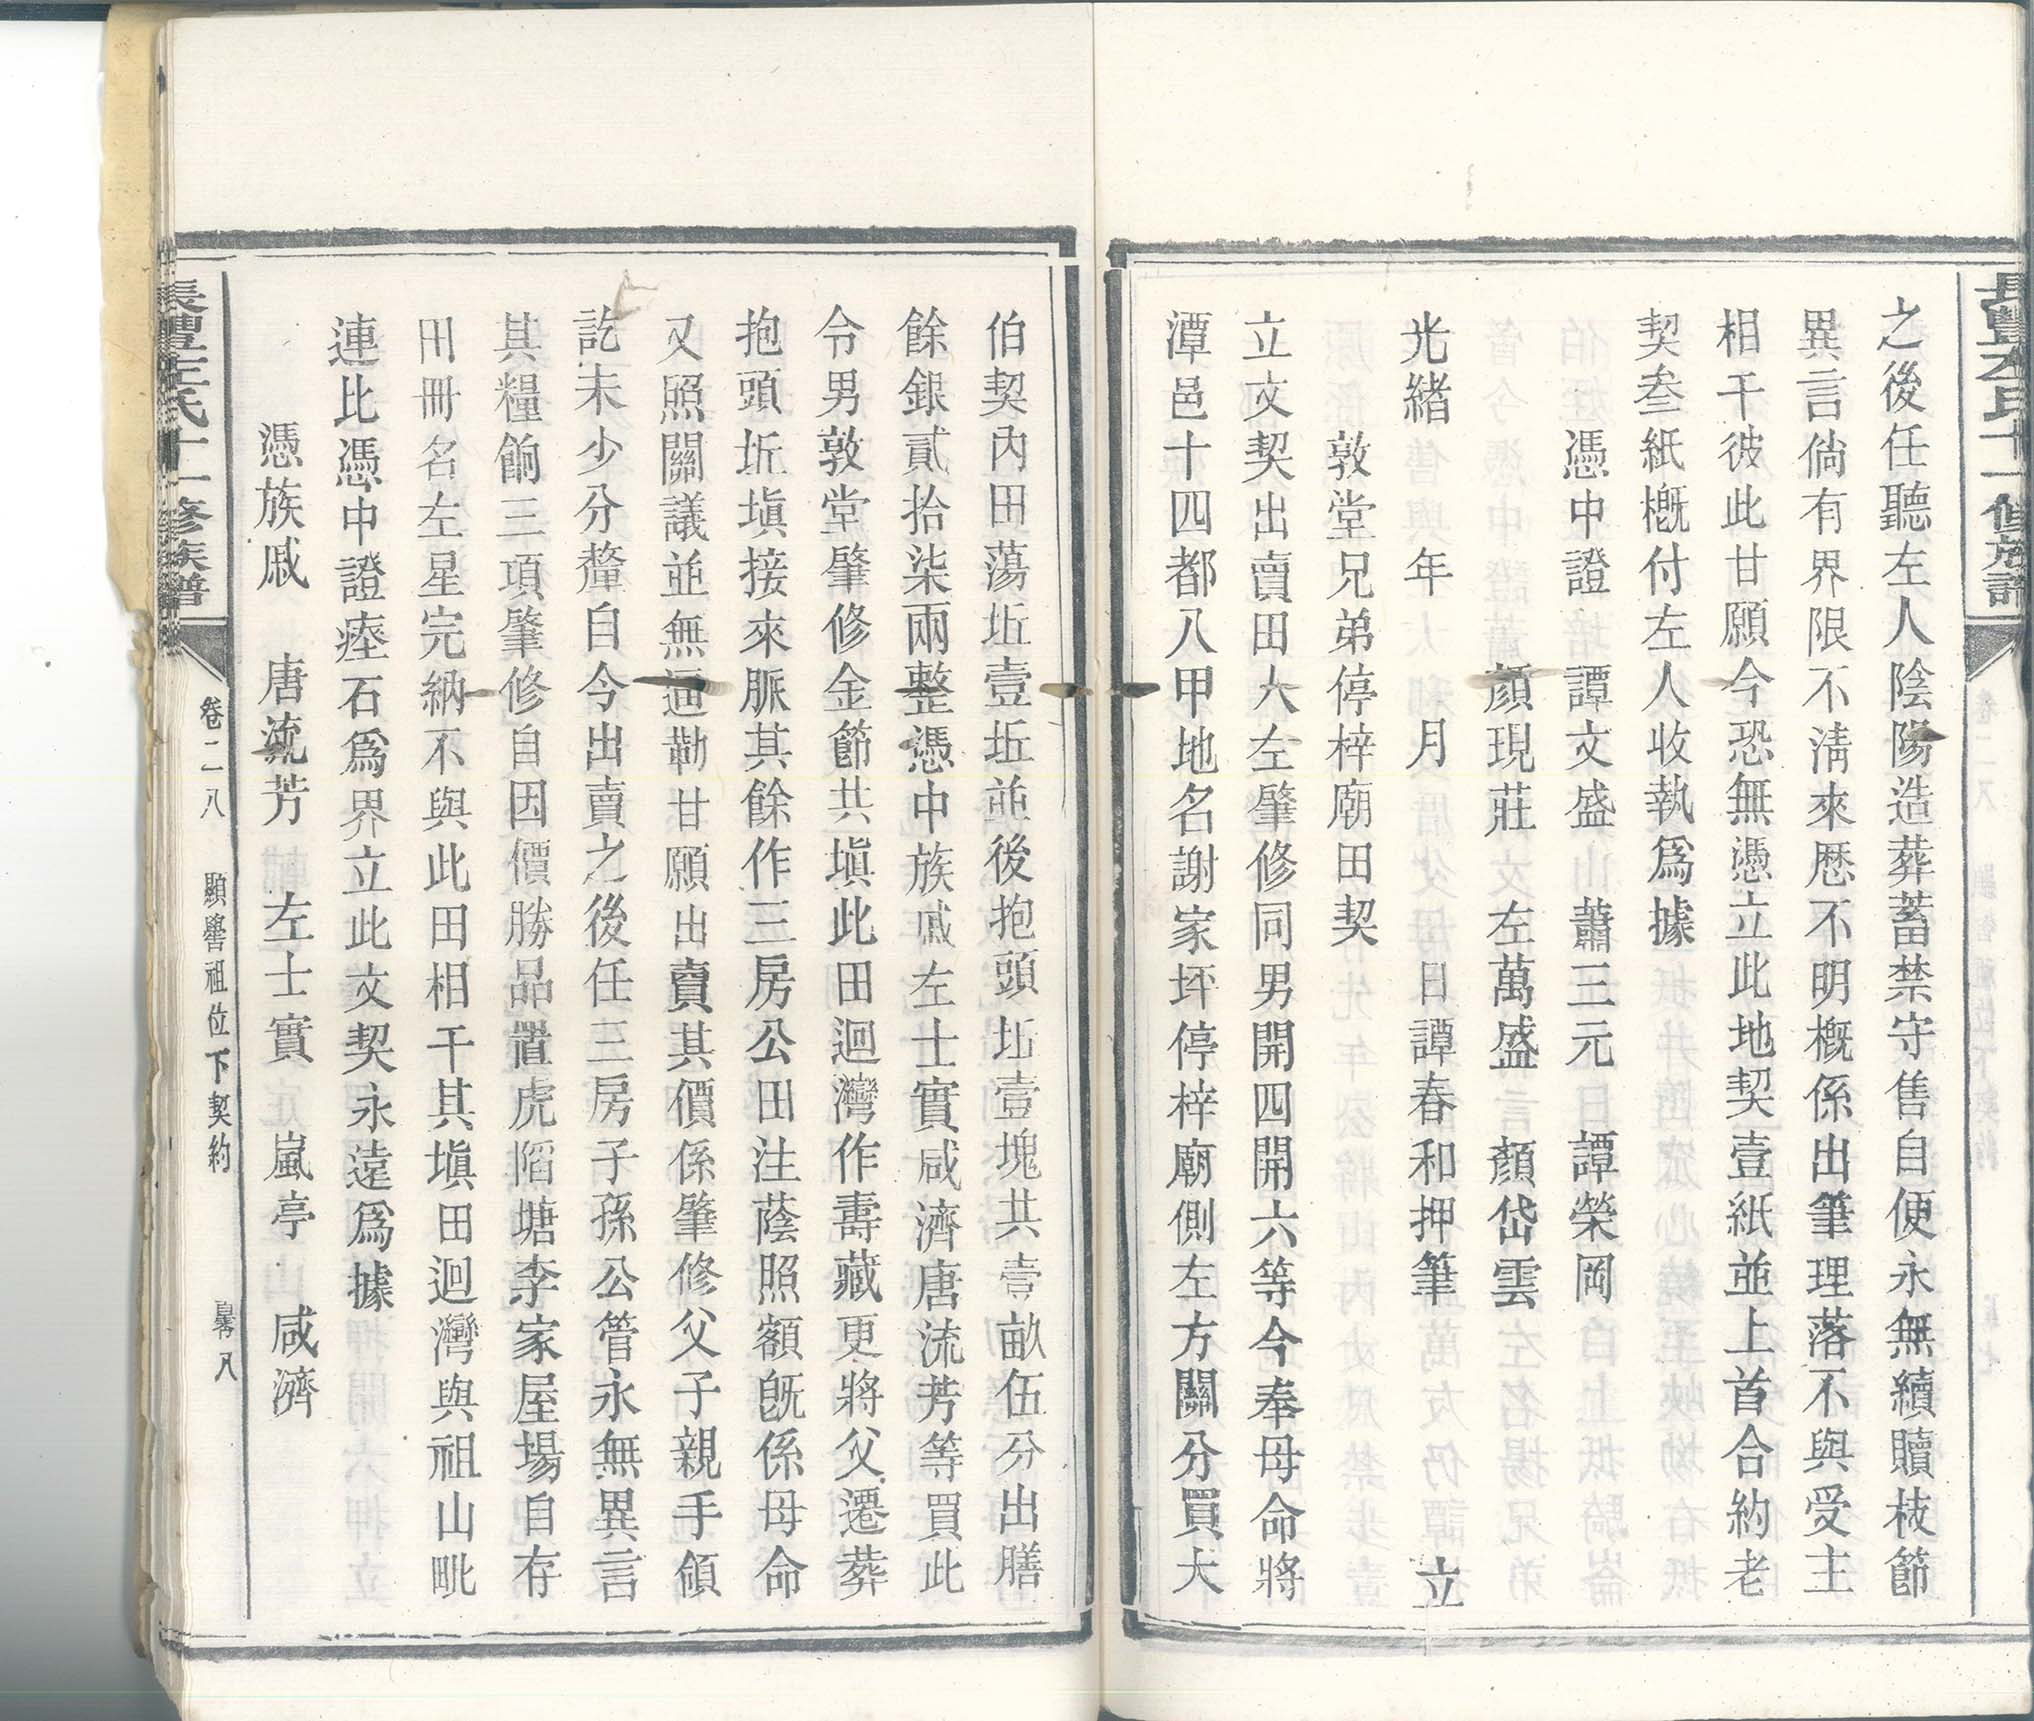 之後任聽左人陰陽造葬蓄禁守售自便永無續贖枝節
異言倘有界限不淸來厯不明槪係出筆理落不與受主
相干彼此甘願今恐無憑立此地契壹紙並上首合約老
契叁紙槪付左人收執爲據
憑中證 譚文盛 蕭三元 譚榮岡
顏現莊 左萬盛 顏岱雲
光緖 年 月 日譚春和押筆 立
敦堂兄弟停梓廟田契
立文契出賣田人左肇修同男開四開六等今奉母命將
潭邑十四都八甲地名謝家坪停梓廟側左方關分買大
伯契內田蕩坵壹坵並後抱頭坵壹塊共壹畝伍分出膳
餘銀貳拾柒兩整憑中族戚左士實咸濟唐流芳等買此
令男敦堂肇修金節共塡此田迴灣作壽藏更將父遷葬
抱頭坵塡接來脈其餘作三房公田注蔭照額旣係母命
又照關議並無逼勒甘願出賣其價係肇修父子親手領
訖未少分釐自今出賣之後任三房子孫公管永無異言
其糧餉三項肇修自因價勝品置虎陷塘李家屋場自存
田冊名左星完納不與此田相干其塡田迴灣與祖山毗
連比憑中證瘞石爲界立此文契永遠爲據
憑族戚 唐流芳 左士實 嵐亭 咸濟
長豐左氏十一修族譜
卷二八 顯礐祖位下契約 八